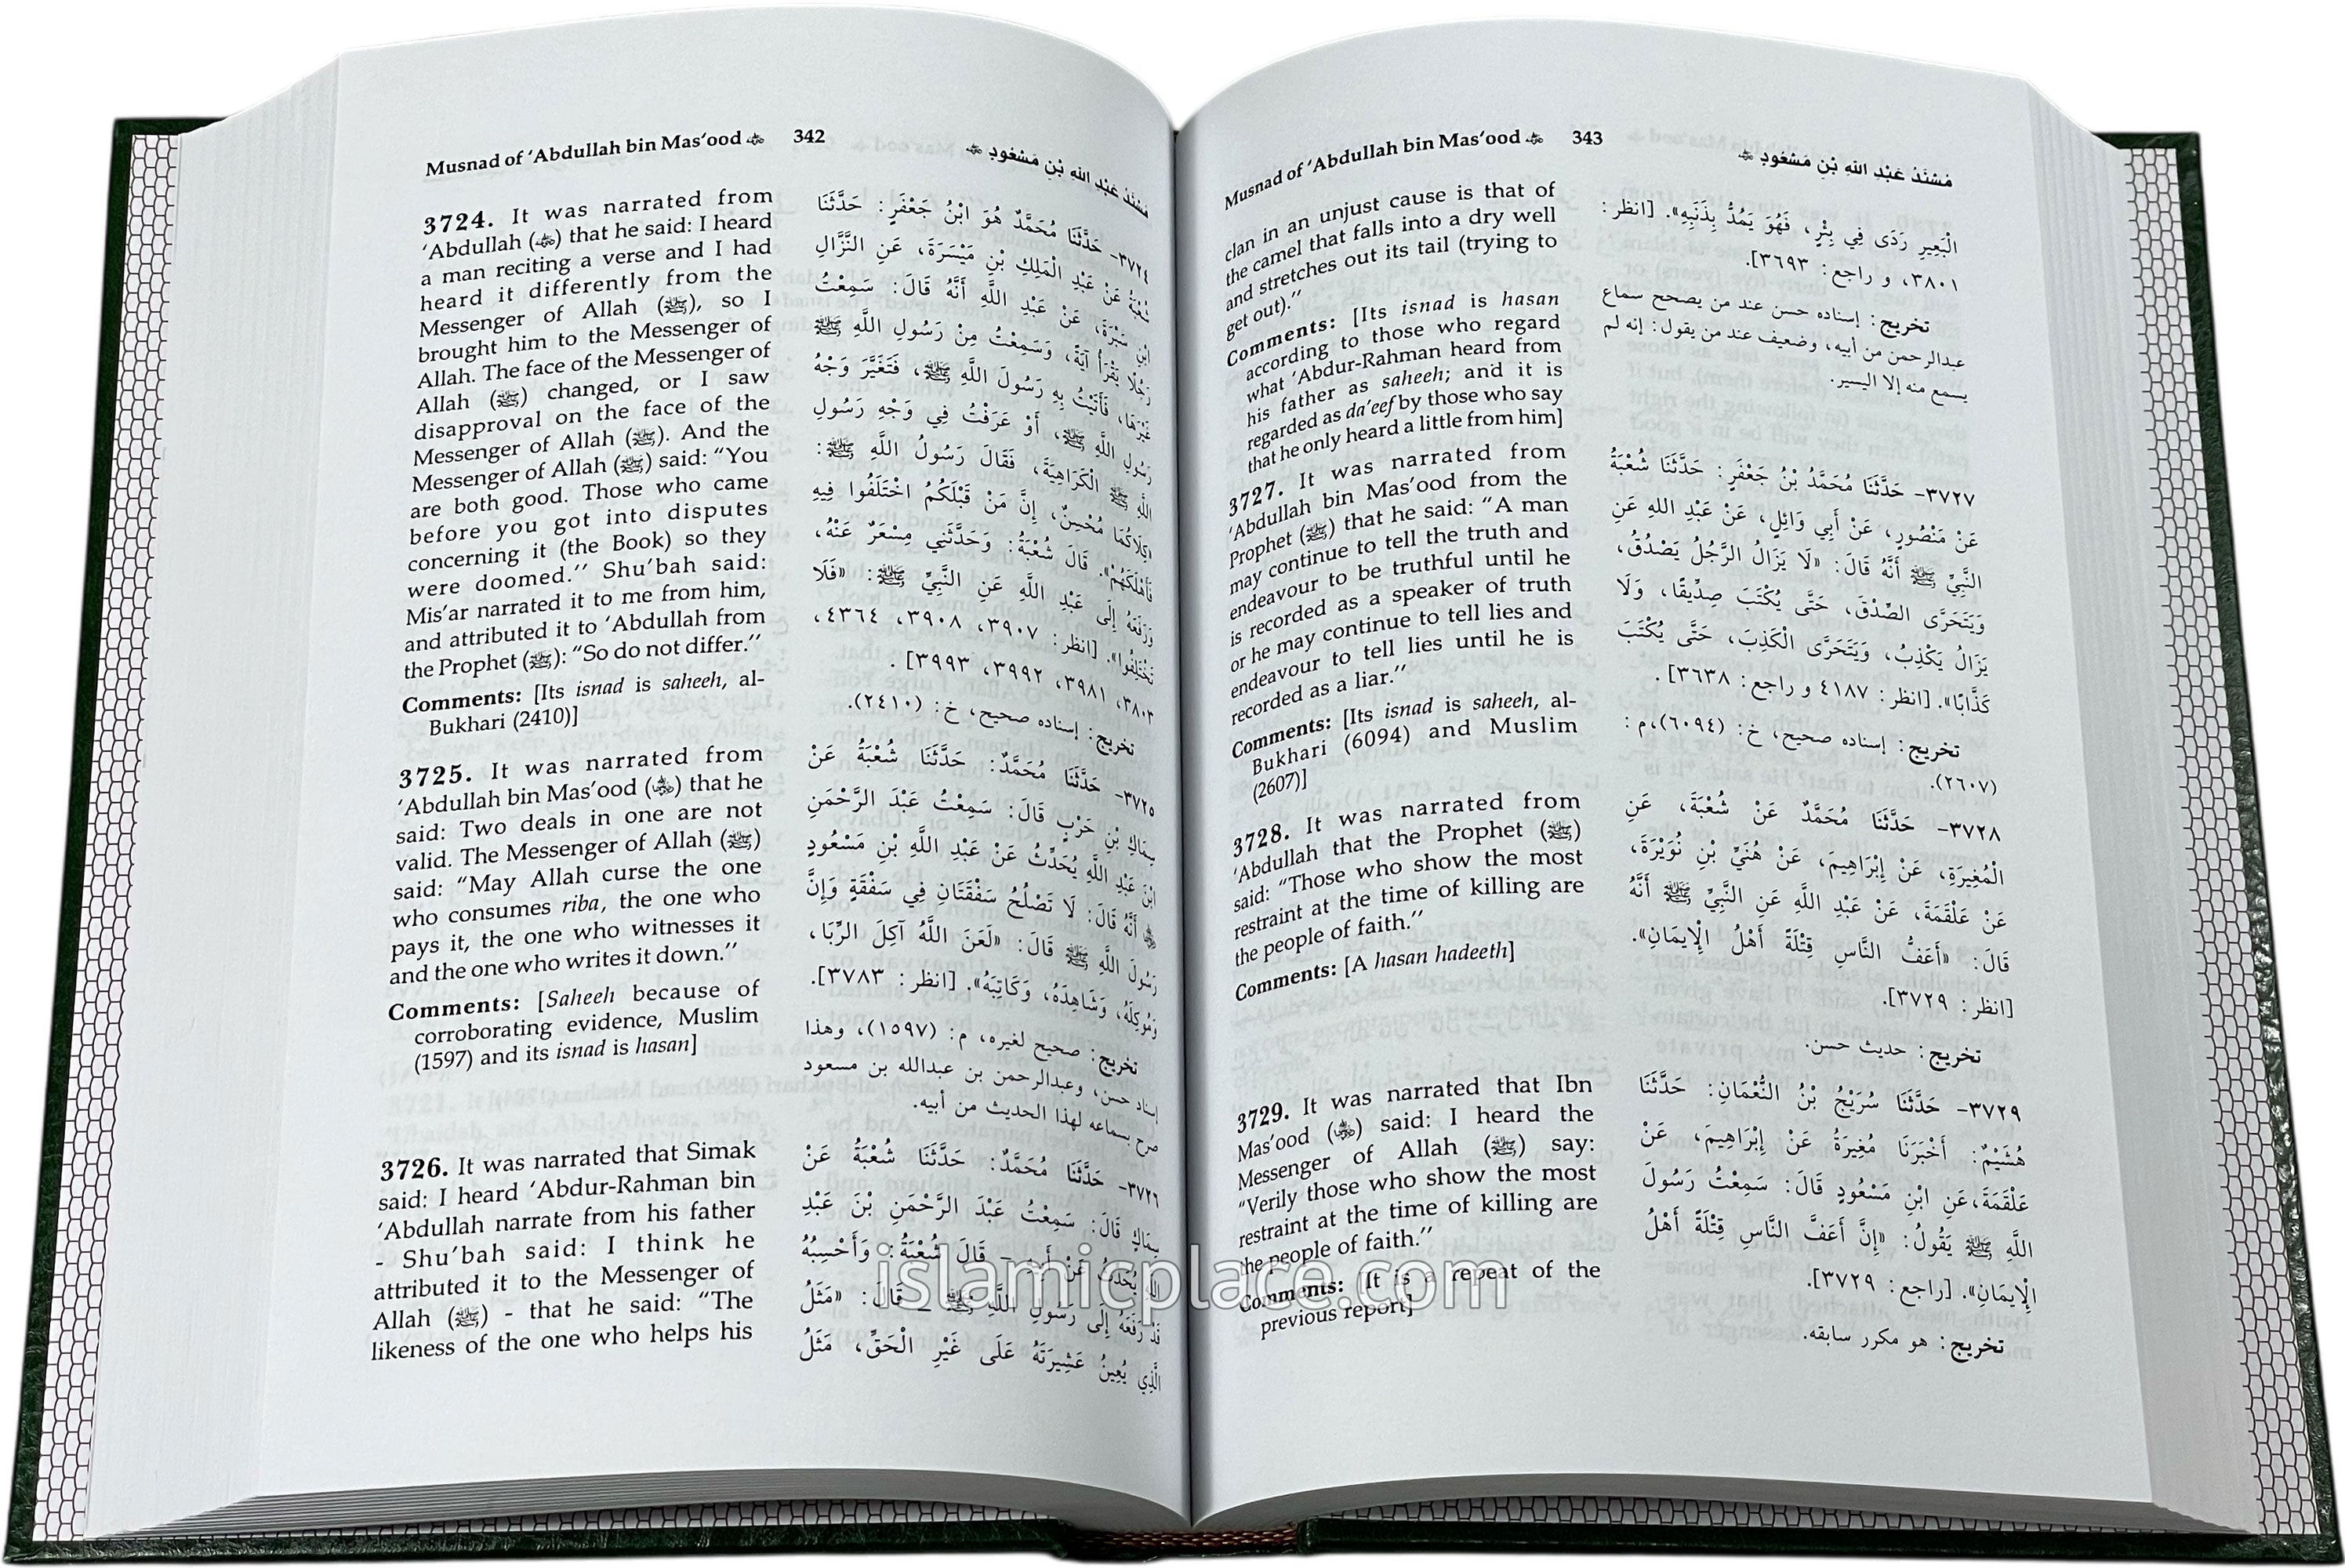 Musnad of ‘Abdullah bin Mas‘ood 342 مُسْنَدُ عَبْدِ اللهِ بْنِ مَسْعُودٍ
3724. It was narrated from
‘Abdullah (رضي الله عنه) that he said: I heard
a man reciting a verse and I had
heard it differently from the
Messenger of Allah (ﷺ), so I
brought him to the Messenger of
Allah. The face of the Messenger of
Allah (ﷺ) changed, or I saw
disapproval on the face of the
Messenger of Allah (ﷺ). And the
Messenger of Allah (ﷺ) said: “You
are both good. Those who came
before you got into disputes
concerning it (the Book) so they
were doomed.’’ Shu‘bah said:
Mis‘ar narrated it to me from him,
and attributed it to ‘Abdullah from
the Prophet (ﷺ): “So do not differ.’’
Comments: [Its isnad is saheeh, al-
Bukhari (2410)]
3725. It was narrated from
‘Abdullah bin Mas‘ood (رضي الله عنه) that he
said: Two deals in one are not
valid. The Messenger of Allah (ﷺ)
said: “May Allah curse the one
who consumes riba, the one who
pays it, the one who witnesses it
and the one who writes it down.’’
Comments: [Saheeh because of
corroborating evidence, Muslim
(1597) and its isnad is hasan]
3726. It was narrated that Simak
said: I heard ‘Abdur-Rahman bin
‘Abdullah narrate from his father
- Shu‘bah said: I think he
attributed it to the Messenger of
Allah (ﷺ) - that he said: “The
likeness of the one who helps his
٣٧٢٤- حَدَّثَنَا مُحَمَّدٌ هُوَ ابْنُ جَعْفَرٍ: حَدَّثَنَا
شُعْبَةُ عَنْ عَبْدِ الْمَلِكِ بْنِ مَيْسَرَةَ، عَنِ النَّزَّالِ
ابْنِ سَبْرَةَ، عَنْ عَبْدِ اللَّهِ أَنَّهُ قَالَ: سَمِعْتُ
رَجُلًا يَقْرَأُ آيَةً، وَسَمِعْتُ مِنْ رَسُولِ اللَّهِ ﷺ
غَيْرَهَا، فَأَتَيْتُ بِهِ رَسُولَ اللَّهِ ﷺ، فَتَغَيَّرَ وَجْهُ
رَسُولِ اللَّهِ ﷺ، أَوْ عَرَفْتُ فِي وَجْهِ رَسُولِ
اللَّهِ ﷺ الْكَرَاهِيَةَ، فَقَالَ رَسُولُ اللَّهِ ﷺ:
«كِلَاكُمَا مُحْسِنٌ، إِنَّ مَنْ قَبْلَكُمُ اخْتَلَفُوا فِيهِ
فَأَهْلَكَهُمْ». قَالَ شُعْبَةُ: وَحَدَّثَنِي مِسْعَرٌ عَنْهُ،
وَرَفَعَهُ إِلَى عَبْدِ اللَّهِ عَنِ النَّبِيِّ ﷺ: «فَلَا
تَخْتَلِفُوا». [انظر: ٣٩٠٧، ٣٩٠٨، ٤٣٦٤،
٣٨٠٣، ٣٩٨١، ٣٩٩٢، ٣٩٩٣].
تخريج: إسناده صحيح، خ: (٢٤١٠).
٣٧٢٥- حَدَّثَنَا مُحَمَّدٌ: حَدَّثَنَا شُعْبَةُ عَنْ
سِمَاكِ بْنِ حَرْبٍ قَالَ: سَمِعْتُ عَبْدَ الرَّحْمَنِ
ابْنَ عَبْدِ اللَّهِ يُحَدِّثُ عَنْ عَبْدِ اللَّهِ بْنِ مَسْعُودٍ
أَنَّهُ قَالَ: لَا تَصْلُحُ سَفْقَتَانِ فِي سَفْقَةٍ وَإِنَّ
رَسُولَ اللَّهِ ﷺ قَالَ: «لَعَنَ اللَّهُ آكِلَ الرِّبَا،
وَمُوكِلَهُ، وَشَاهِدَهُ، وَكَاتِبَهُ». [انظر: ٣٧٨٣].
تخريج: صحيح لغيره، م: (١٥٩٧)، وهذا
إسناد حسن، وعبدالرحمن بن عبدالله بن مسعود
صرح بسماعه لهذا الحديث من أبيه.
٣٧٢٦- حَدَّثَنَا مُحَمَّدٌ: حَدَّثَنَا شُعْبَةُ عَنْ
سِمَاكٍ قَالَ: سَمِعْتُ عَبْدَ الرَّحْمَنِ بْنَ عَبْدِ
اللَّهِ يُحَدِّثُ عَنْ أَبِيهِ - قَالَ شُعْبَةُ: وَأَحْسِبُهُ
قَدْ رَفَعَهُ إِلَى رَسُولِ اللَّهِ ﷺ - قَالَ: «مَثَلُ
الَّذِي يُعِينُ عَشِيرَتَهُ عَلَى غَيْرِ الْحَقِّ، مَثَلُ
Musnad of ‘Abdullah bin Mas‘ood 343 مُسْنَدُ عَبْدِ اللهِ بْنِ مَسْعُودٍ
clan in an unjust cause is that of
the camel that falls into a dry well
and stretches out its tail (trying to
get out).’’
Comments: [Its isnad is hasan
according to those who regard
what ‘Abdur-Rahman heard from
his father as saheeh; and it is
regarded as da‘eef by those who say
that he only heard a little from him]
3727. It was narrated from
‘Abdullah bin Mas‘ood from the
Prophet (ﷺ) that he said: “A man
may continue to tell the truth and
endeavour to be truthful until he
is recorded as a speaker of truth
or he may continue to tell lies and
endeavour to tell lies until he is
recorded as a liar.’’
Comments: [Its isnad is saheeh, al-
Bukhari (6094) and Muslim
(2607)]
3728. It was narrated from
‘Abdullah that the Prophet (ﷺ)
said: “Those who show the most
restraint at the time of killing are
the people of faith.’’
Comments: [A hasan hadeeth]
3729. It was narrated that Ibn
Mas‘ood (رضي الله عنه) said: I heard the
Messenger of Allah (ﷺ) say:
“Verily those who show the most
restraint at the time of killing are
the people of faith.’’
Comments: [It is a repeat of the
previous report]
الْبَعِيرِ رَدَى فِي بِئْرٍ، فَهُوَ يَمُدُّ بِذَنَبِهِ». [انظر:
٣٨٠١، و راجع: ٣٦٩٣].
تخريج: إسناده حسن عند من يصحح سماع
عبدالرحمن من أبيه، وضعيف عند من يقول: إنه لم
يسمع منه إلا اليسير.
٣٧٢٧- حَدَّثَنَا مُحَمَّدُ بْنُ جَعْفَرٍ: حَدَّثَنَا شُعْبَةُ
عَنْ مَنْصُورٍ، عَنْ أَبِي وَائِلٍ، عَنْ عَبْدِ اللهِ عَنِ
النَّبِيِّ ﷺ أَنَّهُ قَالَ: «لَا يَزَالُ الرَّجُلُ يَصْدُقُ،
وَيَتَحَرَّى الصِّدْقَ، حَتَّى يُكْتَبَ صِدِّيقًا، وَلَا
يَزَالُ يَكْذِبُ، وَيَتَحَرَّى الْكَذِبَ، حَتَّى يُكْتَبَ
كَذَّابًا». [انظر: ٤١٨٧ و راجع: ٣٦٣٨].
تخريج: إسناده صحيح، خ: (٦٠٩٤)،م:
(٢٦٠٧).
٣٧٢٨- حَدَّثَنَا مُحَمَّدٌ عَنْ شُعْبَةَ، عَنِ
الْمُغِيرَةِ، عَنْ إِبْرَاهِيمَ، عَنْ هُنَيِّ بْنِ نُوَيْرَةَ،
عَنْ عَلْقَمَةَ، عَنْ عَبْدِ اللَّهِ عَنِ النَّبِيِّ ﷺ أَنَّهُ
قَالَ: «أَعَفُّ النَّاسِ قِتْلَةً أَهْلُ الْإِيمَانِ».
[انظر: ٣٧٢٩].
تخريج: حديث حسن.
٣٧٢٩- حَدَّثَنَا سُرَيْجُ بْنُ النُّعْمَانِ: حَدَّثَنَا
هُشَيْمٌ: أَخْبَرَنَا مُغِيرَةُ عَنْ إِبْرَاهِيمَ، عَنْ
عَلْقَمَةَ،عَنِ ابْنِ مَسْعُودٍ قَالَ: سَمِعْتُ رَسُولَ
اللَّهِ ﷺ يَقُولُ: «إِنَّ أَعَفَّ النَّاسِ قِتْلَةً أَهْلُ
الْإِيمَانِ». [راجع: ٣٧٢٩].
تخريج: هو مكرر سابقه.
islamicplace.com